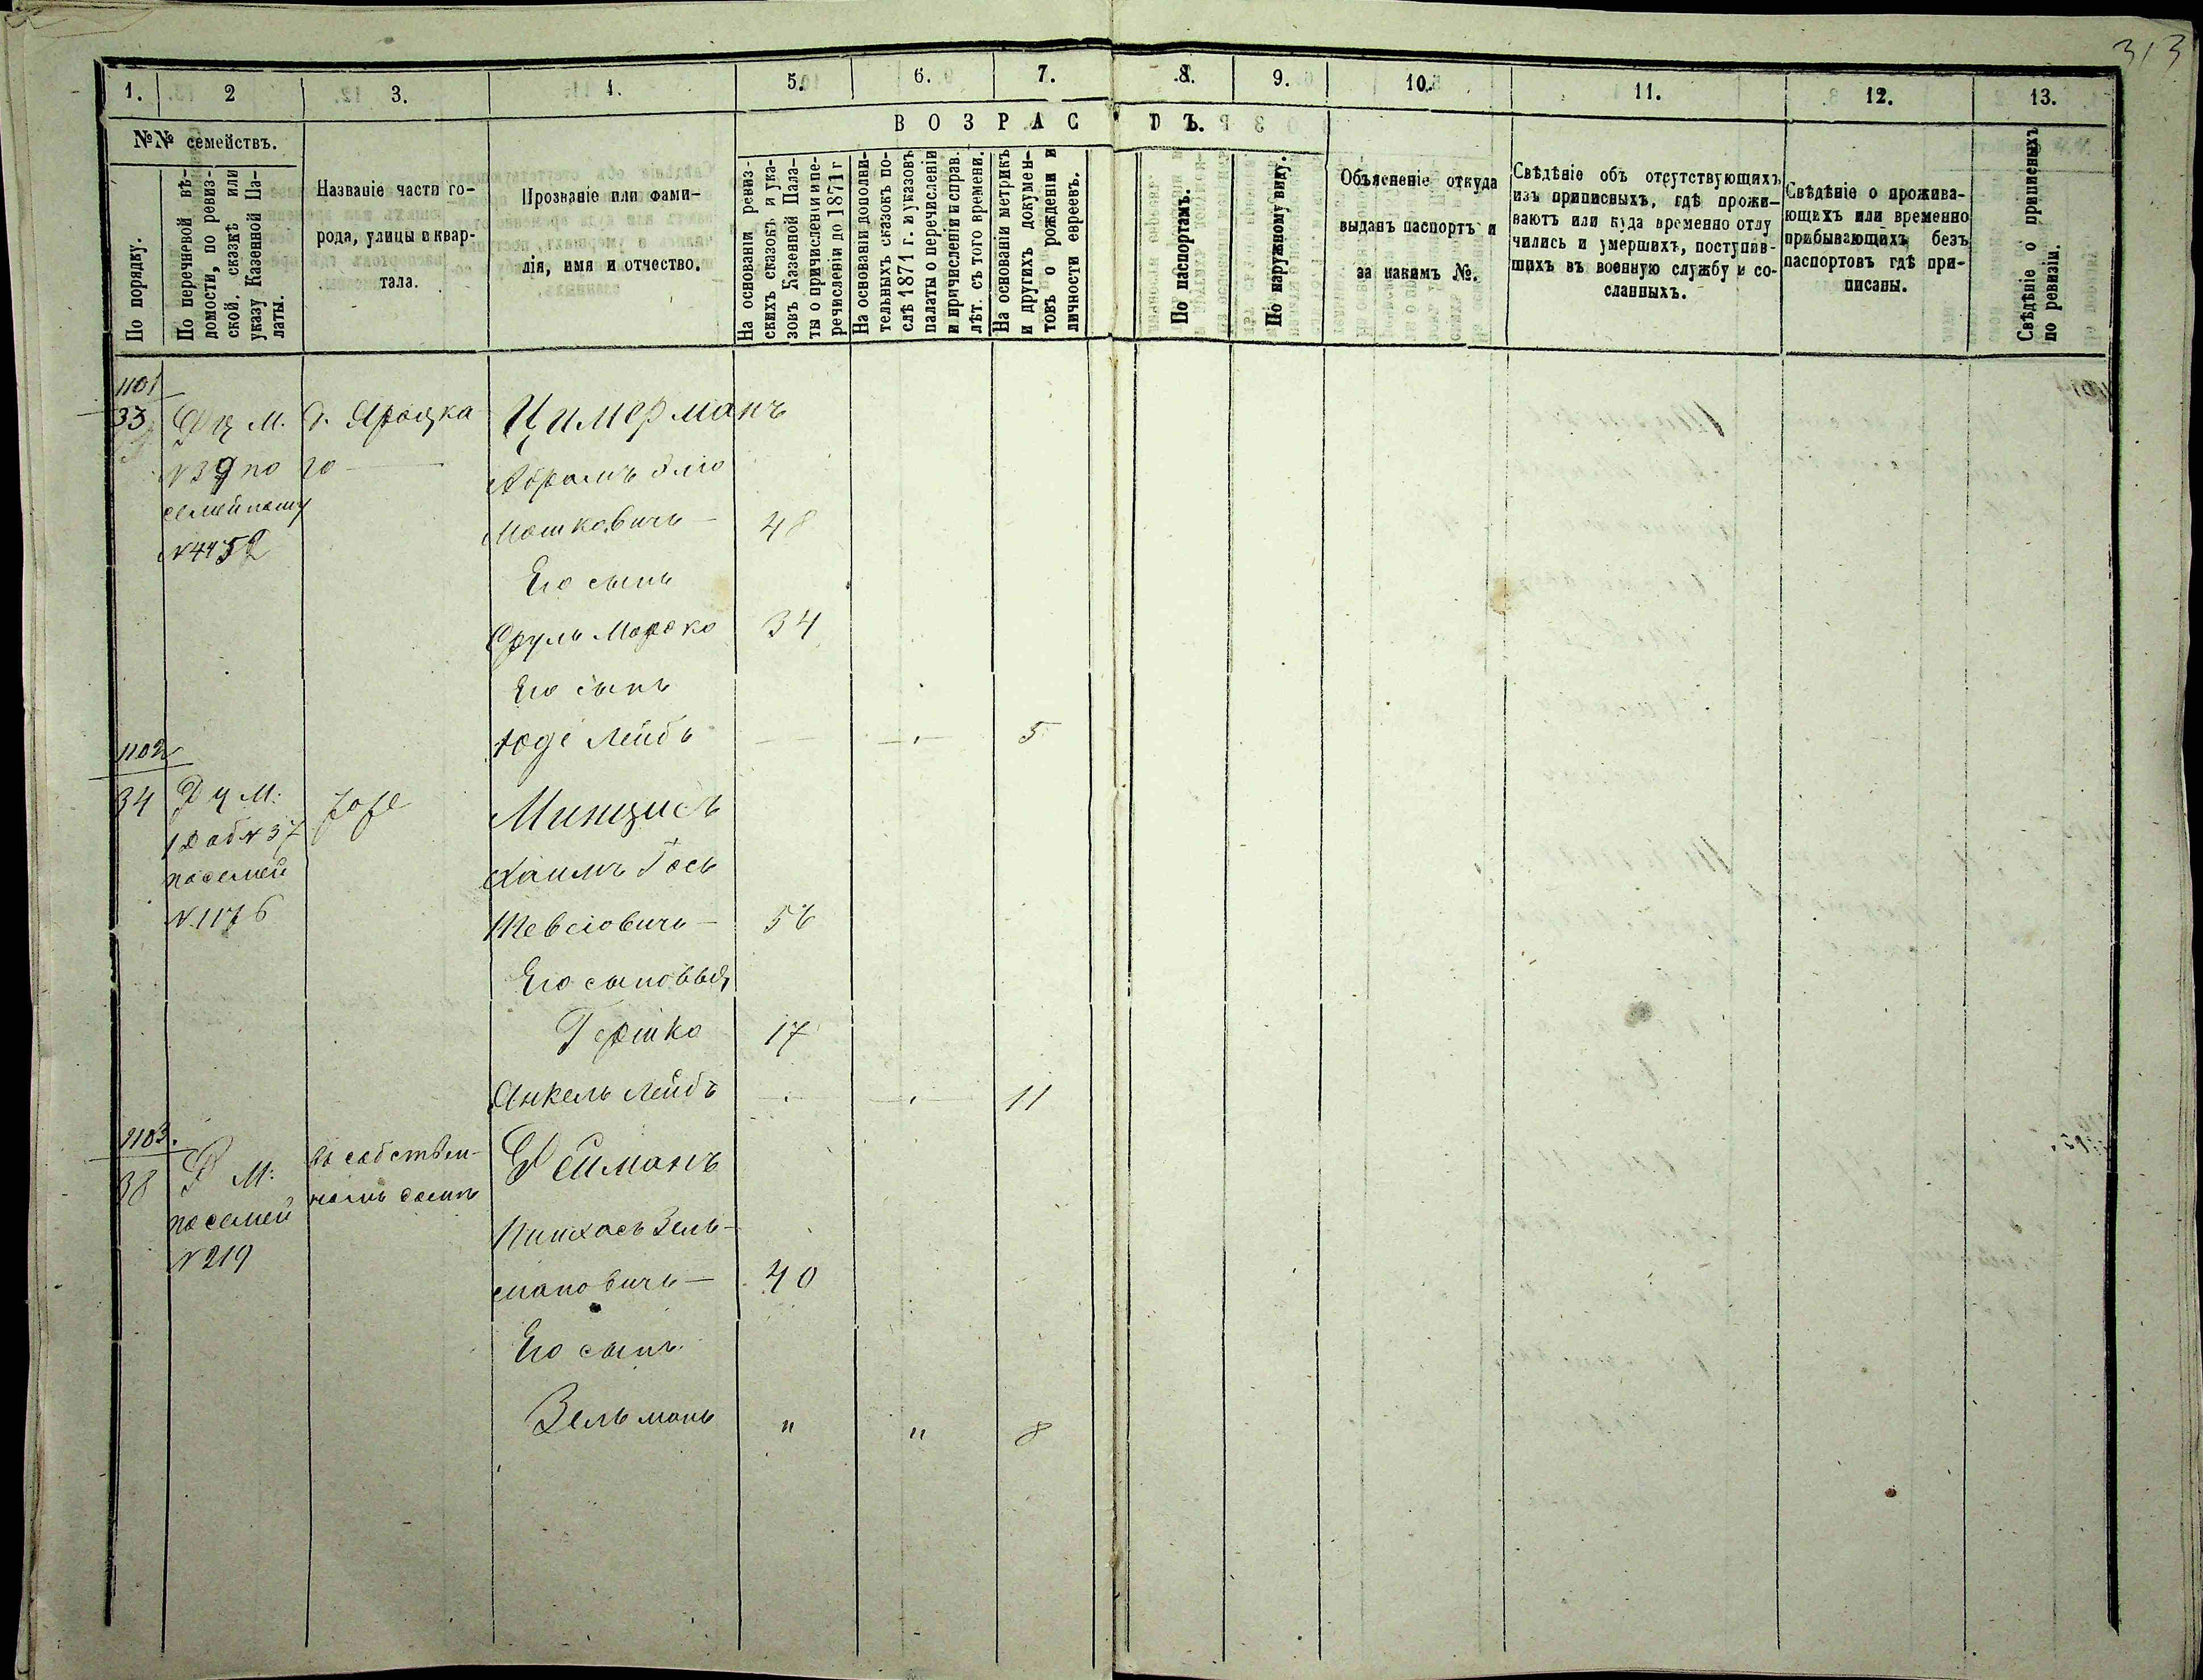 313
1. 2 3. 4. 5. 6. 7. 8. 9. 10. 11. 12. 13.
№№ семействъ.
ВОЗРАСТЪ.
По порядку.
По перечневой вѣ-
домости, по ревиз-
ской сказкѣ или
указу Казенной Па-
латы.
Названіе части го-
рода, улицы и квар-
тала.
Прозваніе или фами-
лія, имя и отчество.
На основаніи ревиз-
скихъ сказокъ и ука-
зовъ Казенной Пала-
ты о причисленіи и пе-
речисленіи до 1871 г
На основаніи дополни-
тельныхъ сказокъ по-
слѣ 1871 г. и указовъ
палаты о перечисленіи
и причисленіи и справ.
лѣт. съ того времени.
На основаніи метрикъ
и другихъ докумен-
товъ о рожденіи и
личности евреевъ.
По паспортамъ.
По наружному виду.
Объясненіе откуда
выданъ паспортъ и
за какимъ №.
Свѣдѣніе объ отсутствующихъ
изъ приписныхъ, гдѣ прожи-
ваютъ или куда временно отлу
чились и умершихъ, поступив-
шихъ въ военную службу и со-
сланныхъ.
Свѣдѣніе о прожива-
ющихъ или временно
прибывающихъ безъ
паспортовъ гдѣ при-
писаны.
Свѣдѣніе о приписныхъ
по ревизіи.
1101
33 М. д. Яроцка Цимерманъ
N39 по го— Абрамъ Эліо
семейному Мошковичъ— 48
N4452
Его сынъ
Сруль Мошко 34
Его сынъ
Лейбъ — — 5
1102
34 М: Минцисъ
N37 Хаимъ Іось
посемей
N.1176 Шевсіовичъ— 56
Его сыновья
Гершко 17
Янкель Лейбъ — — 11
1103.
38 М: въ собствен- Рейманъ
посемей номъ домѣ
N219 Пинхасъ Зель-
мановичъ— 40
Его сынъ
Зельманъ " " 8